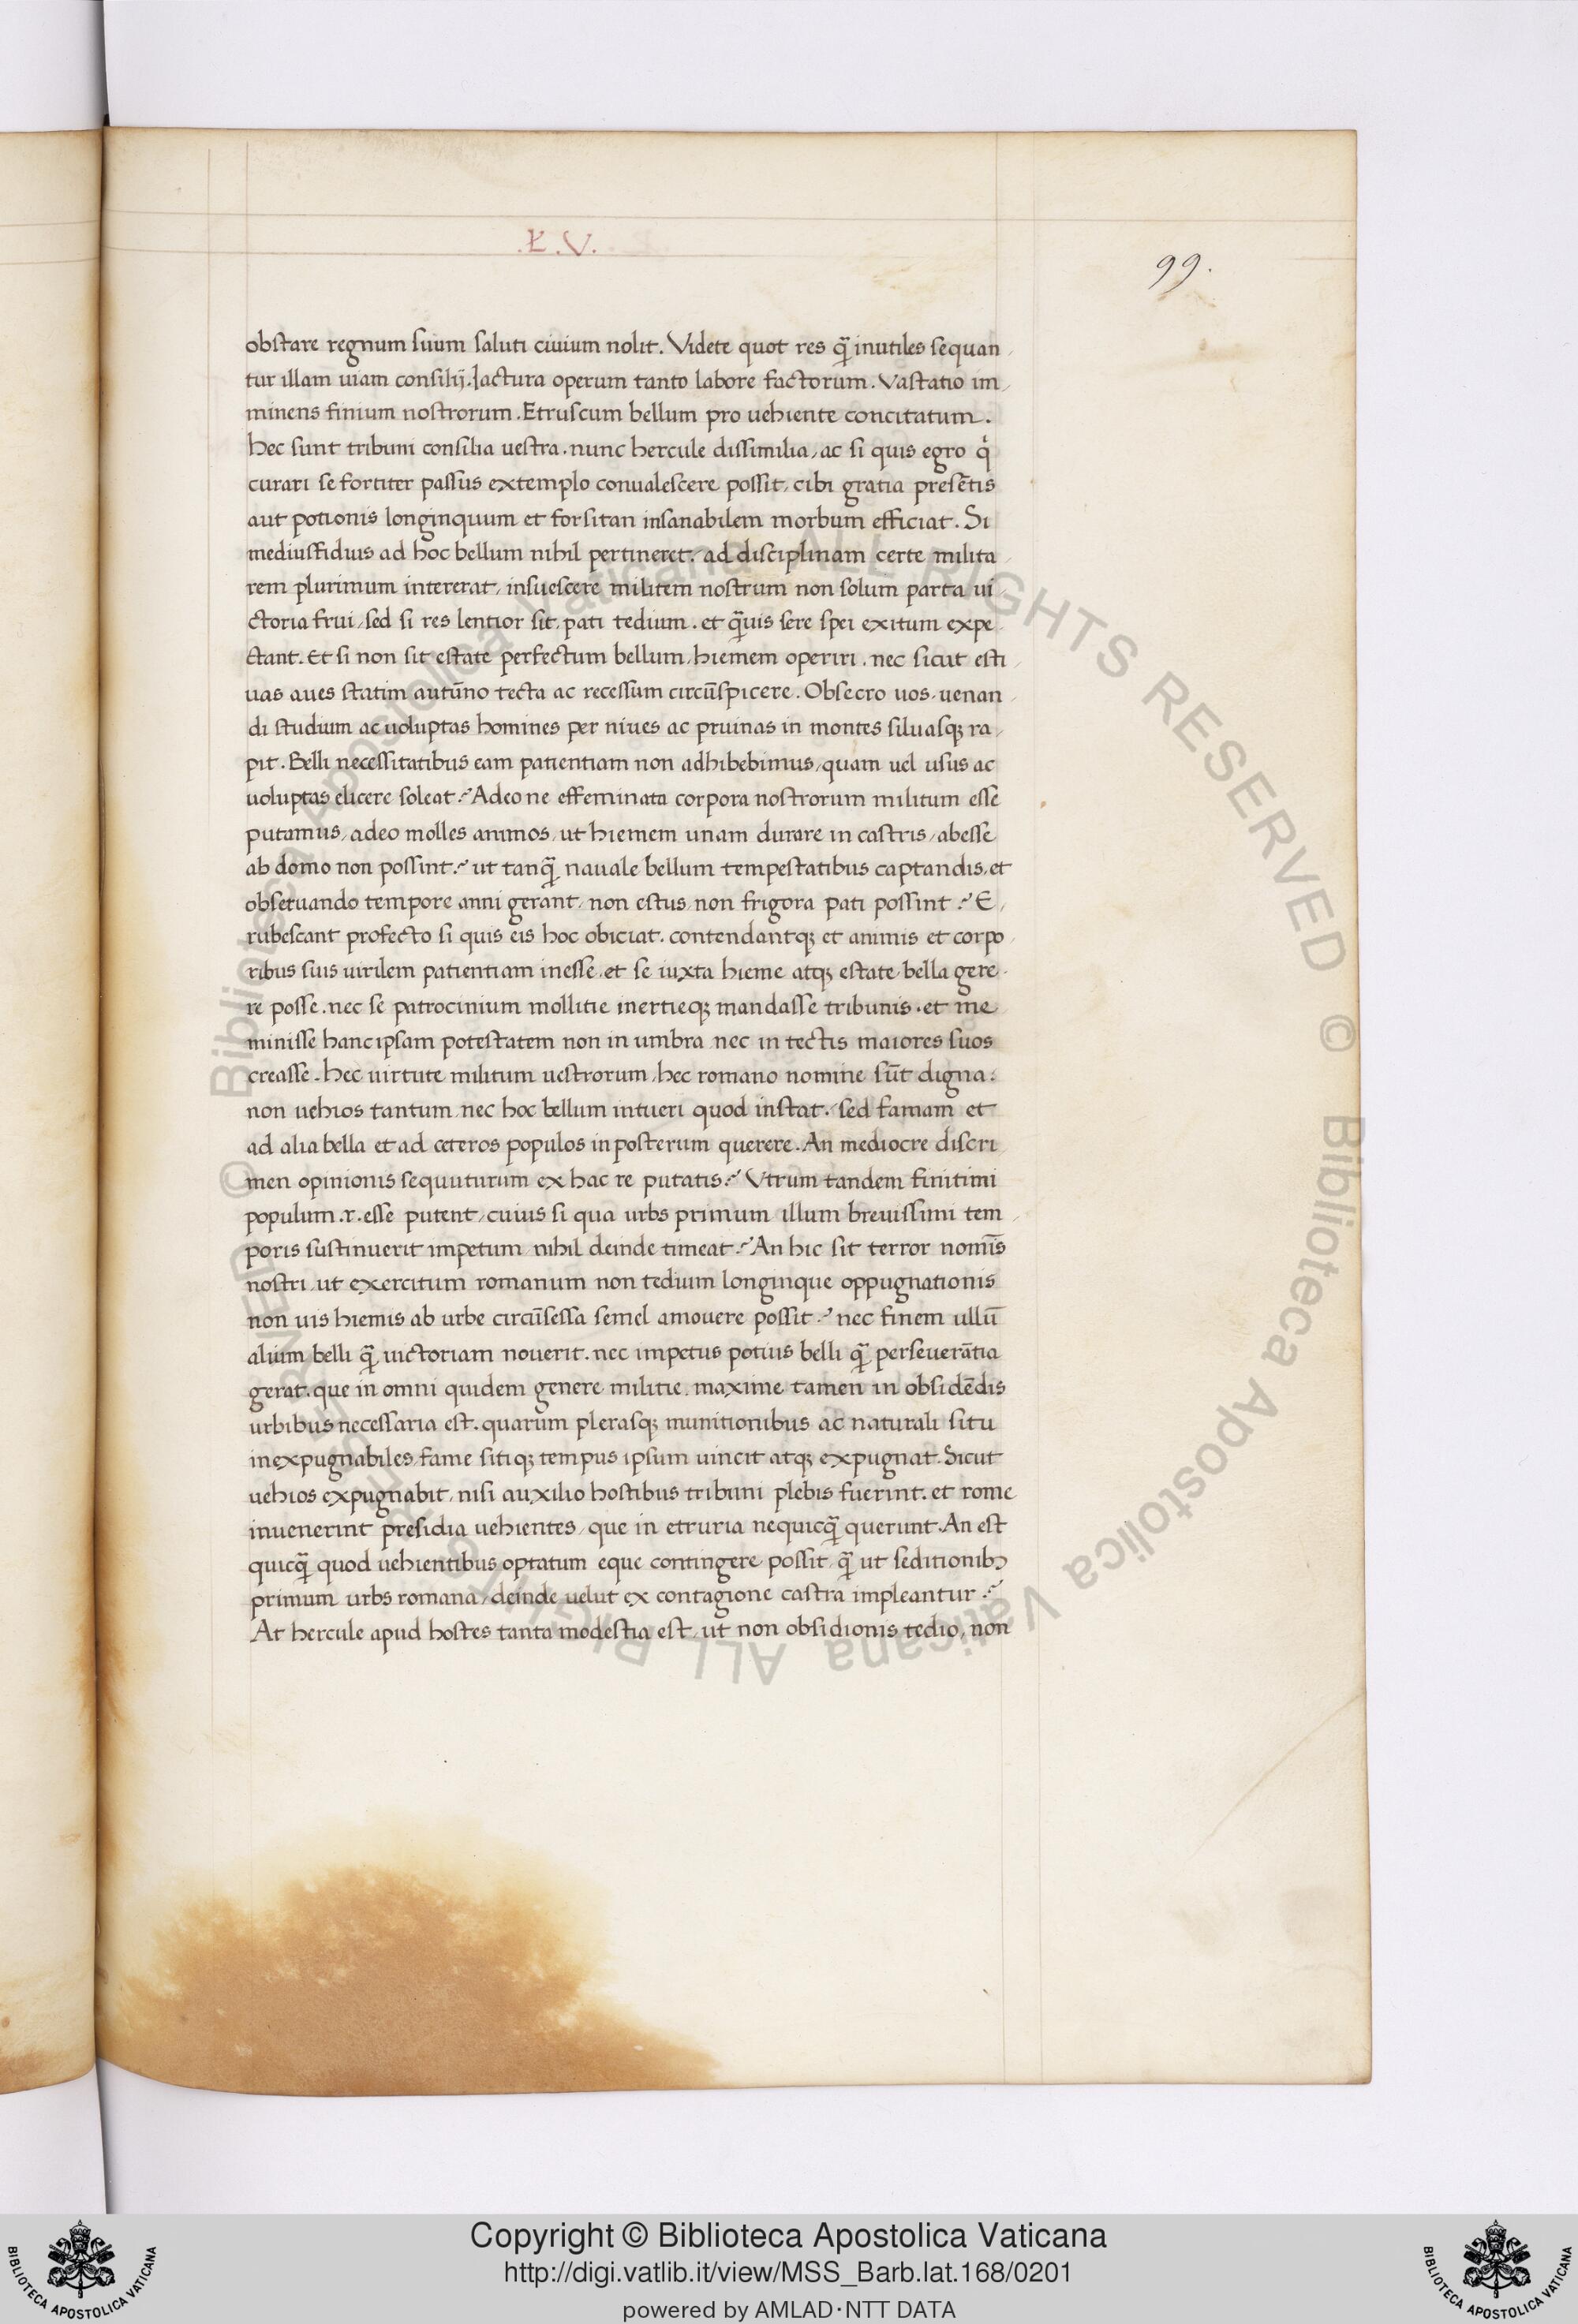 .Ł.V.
99.
obstare regnum suum saluti ciuium nolit. Videte quot res q̃ inutiles sequan
tur illam uiam consilij. Iactura operum tanto labore factorum. Vastatio im
minens finium nostrorum. Etruscum bellum pro uehiente concitatum.
hec sunt tribuni consilia uestra. nunc hercule dissimilia, ac si quis egro qⁱ
curari se fortiter passus extemplo conualescere possit, cibi gratia presẽtis
aut potionis longinquum et forsitan insanabilem morbum efficiat. Si
mediusfidius ad hoc bellum nihil pertineret. ad disciplinam certe milita
rem plurimum intererat, insuescere militem nostrum non solum parta ui
ctoria frui, sed si res lentior sit, pati tedium. et q̃uis sere spei exitum expe
ctant. Et si non sit estate perfectum bellum, hiemem operiri. nec sicut esti
uas aues statim autũno tecta ac recessum circũspicere. Obsecro uos, uenan
di studium ac uoluptas homines per niues ac pruinas in montes siluasqꝫ ra
pit. Belli necessitatibus eam patientiam non adhibebimus, quam uel usus ac
uoluptas elicere soleat? Adeo ne effeminata corpora nostrorum militum esse
putamus, adeo molles animos, ut hiemem unam durare in castris, abesse
ab domo non possint? ut tanq̃ nauale bellum tempestatibus captandis, et
obseruando tempore anni gerant, non estus, non frigora pati possint? E
rubescant profecto si quis eis hoc obiciat. contendantqꝫ et animis et corpo
ribus suis uirilem patientiam inesse, et se iuxta hieme atqꝫ estate bella gere
re posse. nec se patrocinium mollitie inertieqꝫ mandasse tribunis. et me
minisse hanc ipsam potestatem non in umbra nec in tectis maiores suos
creasse. hec uirtute militum uestrorum, hec romano nomine sũt digna.
non uehios tantum nec hoc bellum intueri quod instat. sed famam et
ad alia bella et ad ceteros populos in posterum querere. An mediocre discri
men opinionis sequuturum ex hac re putatis? Vtrum tandem finitimi
populum .r. esse putent, cuius si qua urbs primum illum breuissimi tem
poris sustinuerit impetum nihil deinde timeat? An hic sit terror nomĩs
nostri, ut exercitum romanum non tedium longinque oppugnationis
non uis hiemis ab urbe circũsessa semel amouere possit? nec finem ullũ
alium belli q̃ uictoriam nouerit. nec impetus potius belli q̃ perseuerãtia
gerat. que in omni quidem genere militie, maxime tamen in obsidẽdis
urbibus necessaria est. quarum plerasqꝫ munitionibus ac naturali situ
inexpugnabiles, fame sitiqꝫ tempus ipsum uincit atqꝫ expugnat. Sicut
uehios expugnabit, nisi auxilio hostibus tribuni plebis fuerint. et rome
inuenerint presidia uehientes, que in etruria nequicq̃ querunt. An est
quicq̃ quod uehientibus optatum eque contingere possit, q̃ ut seditionibꝰ
primum urbs romana, deinde uelut ex contagione castra impleantur?
At hercule apud hostes tanta modestia est, ut non obsidionis tedio, non
© Biblioteca Apostolica Vaticana ALL RIGHTS RESERVED
© Biblioteca Apostolica Vaticana ALL RIGHTS RESERVED
BIBLIOTECA APOSTOLICA VATICANA
Copyright © Biblioteca Apostolica Vaticana
http://digi.vatlib.it/view/MSS_Barb.lat.168/0201
powered by AMLAD·NTT DATA
BIBLIOTECA APOSTOLICA VATICANA